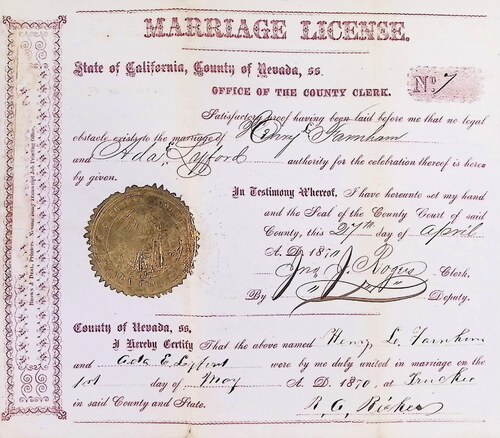 MARRIAGE LICENSE.
State of California, County of Nevada, ss.
OFFICE OF THE COUNTY CLERK.
No. 7
Satisfactory proof having been laid before me that no legal
obstacle exists to the marriage of Henry L. Farnham
and Ada Lyford authority for the celebration thereof is here
by given.
In Testimony Whereof, I have hereunto set my hand
and the Seal of the County Court of said
County, this 27th day of April
A. D. 1870
Jno J. Rogers Clerk.
By Deputy.
County of Nevada, ss.
I Hereby Certify That the above named Henry L. Farnham
and Ada E. Lyford were by me duly united in marriage on the
1st day of May A. D. 1870, at Truckee
in said County and State.